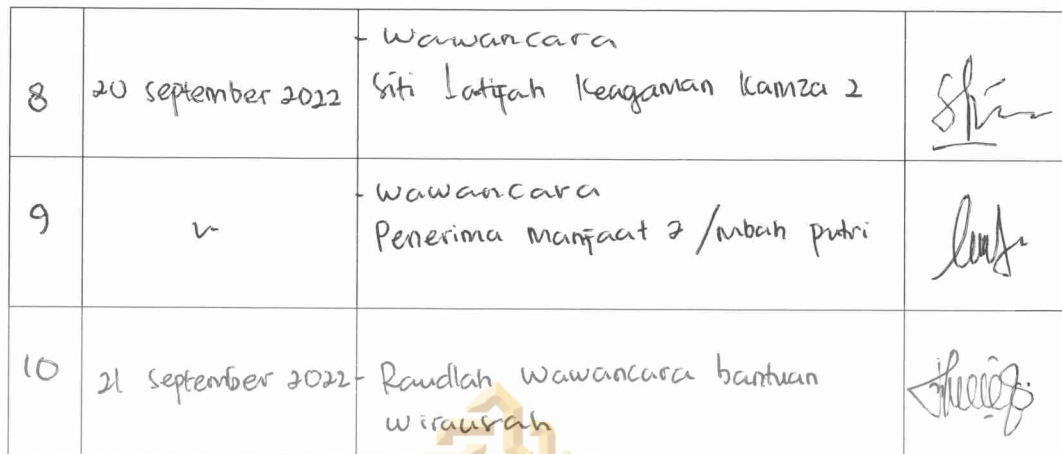 - Wawancara
8 20 september 2022 Siti Latifah Keagaman Kamza 2
- wawancara
9 Penerima manfaat 2 / mbah putri
10 21 september 2022 - Raudlah wawancara bantuan
wirausah